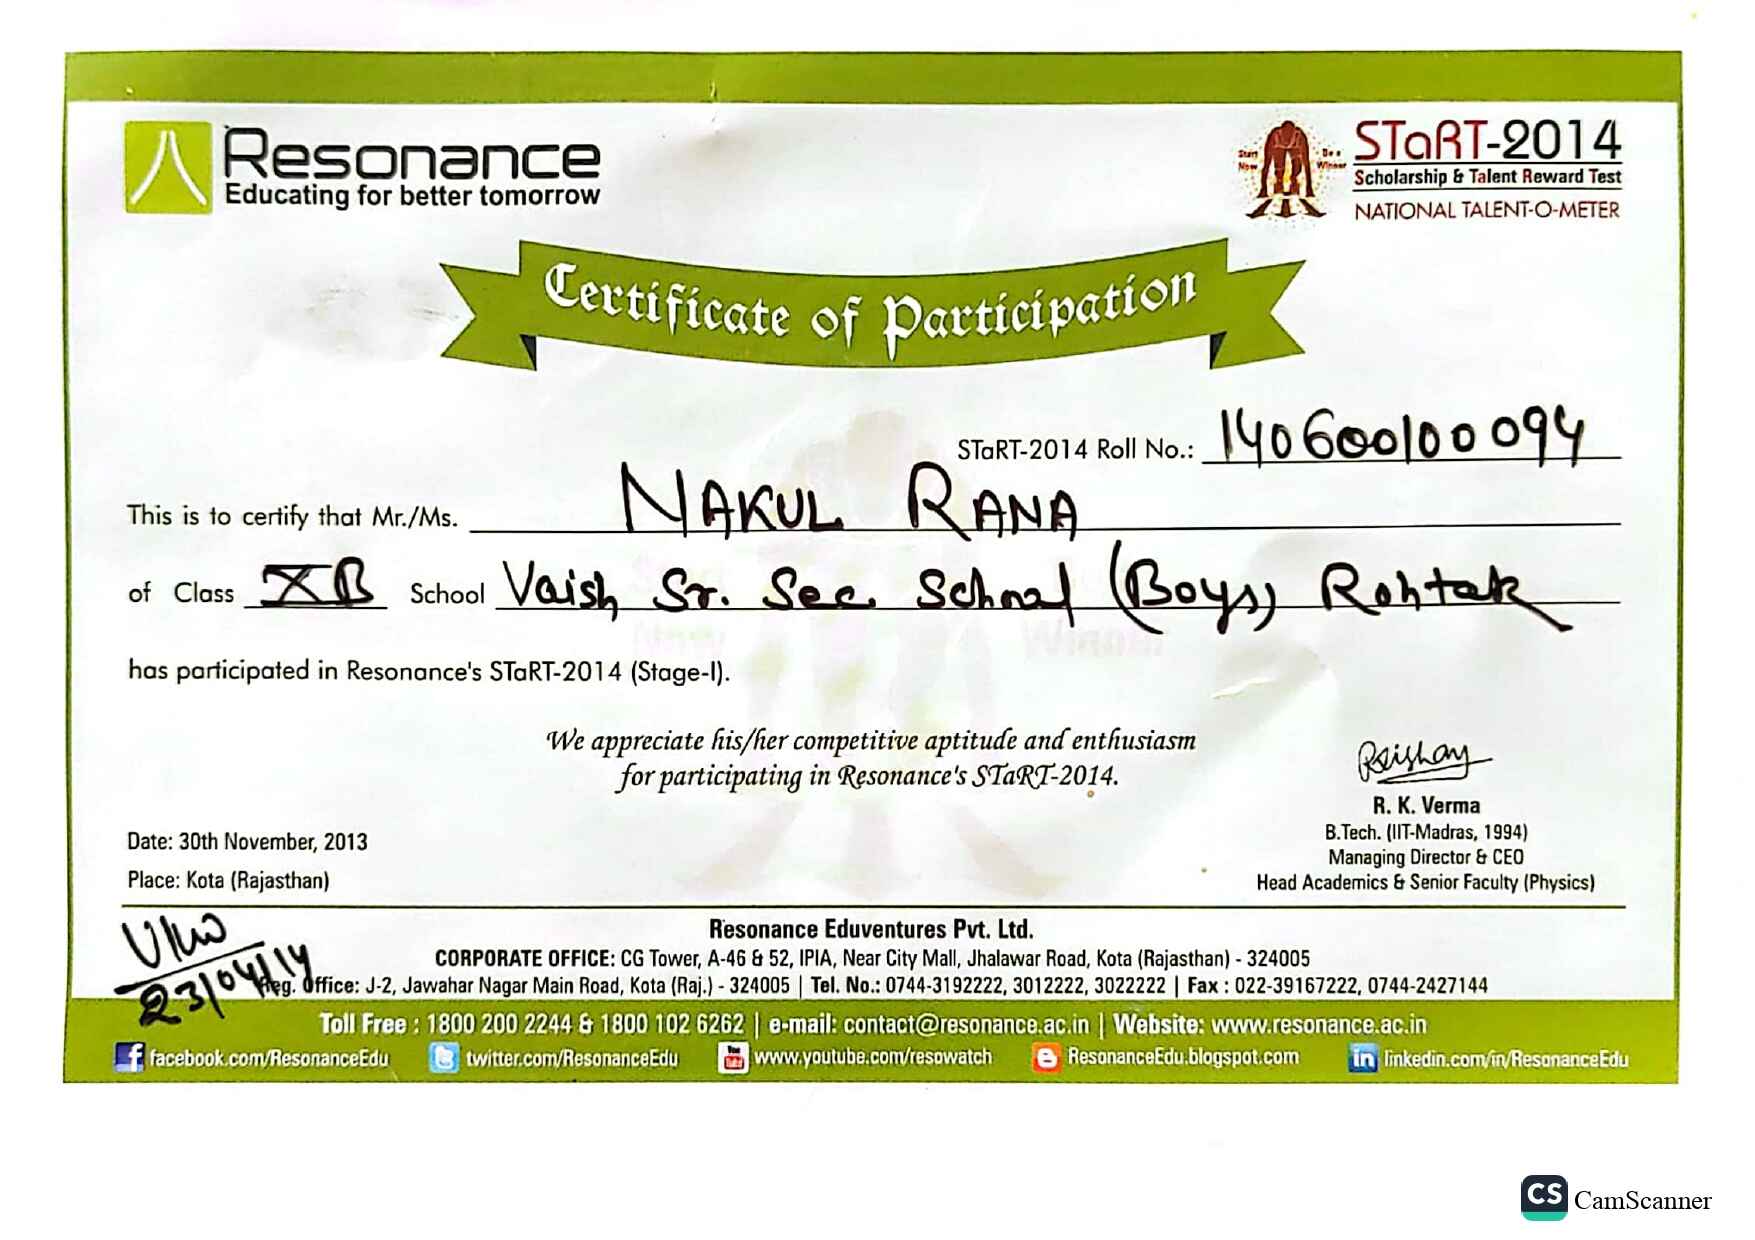 Resonance
Educating for better tomorrow
Start Now
Be a Winner
STaRT-2014
Scholarship & Talent Reward Test
NATIONAL TALENT-O-METER
Certificate of Participation
STaRT-2014 Roll No.: 140600100094
This is to certify that Mr./Ms. NAKUL RANA
of Class XB School Vaish Sr. Sec. School (Boys) Rohtak
has participated in Resonance's STaRT-2014 (Stage-I).
We appreciate his/her competitive aptitude and enthusiasm
for participating in Resonance's STaRT-2014.
R. K. Verma
B.Tech. (IIT-Madras, 1994)
Managing Director & CEO
Head Academics & Senior Faculty (Physics)
Date: 30th November, 2013
Place: Kota (Rajasthan)
23/04/14
Resonance Eduventures Pvt. Ltd.
CORPORATE OFFICE: CG Tower, A-46 & 52, IPIA, Near City Mall, Jhalawar Road, Kota (Rajasthan) - 324005
Reg. Office: J-2, Jawahar Nagar Main Road, Kota (Raj.) - 324005 | Tel. No.: 0744-3192222, 3012222, 3022222 | Fax : 022-39167222, 0744-2427144
Toll Free : 1800 200 2244 & 1800 102 6262 | e-mail: contact@resonance.ac.in | Website: www.resonance.ac.in
facebook.com/ResonanceEdu twitter.com/ResonanceEdu You Tube www.youtube.com/resowatch ResonanceEdu.blogspot.com in linkedin.com/in/ResonanceEdu
CS CamScanner